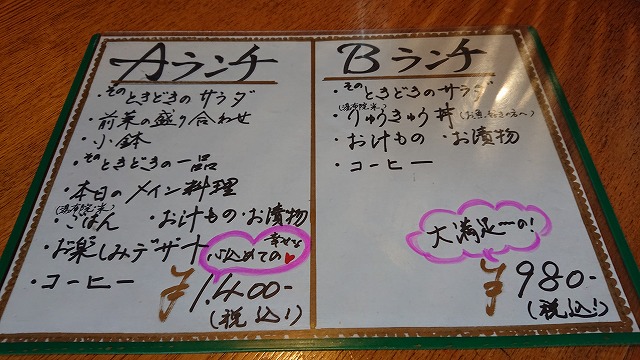 Aランチ
・そのときどきのサラダ
・前菜の盛り合わせ
・小鉢
・そのときどきの一品
・本日のメイン料理
(湯布院米)
・ごはん ・お汁もの・お漬物
・お楽しみデザート
幸せな
心込めての
・コーヒー
¥1.400-
(税込!)
Bランチ
・そのときどきのサラダ
(湯布院米)
・りゅうきゅう丼(お魚好きの方へ)
・お汁もの ・お漬物
・コーヒー
大満足ーの!
¥980-
(税込!)